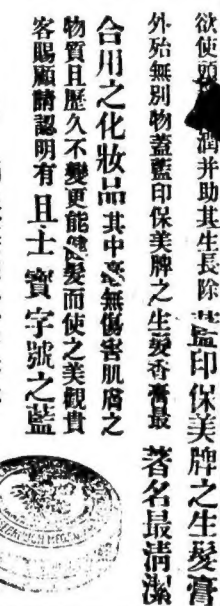 欲使頭潤并助其生長除藍印保美牌之生髮膏
外殆無別物蓋藍印保美牌之生髮香膏最著名最清潔
合用之化妝品其中毫無傷害肌膚之
物質且歷久不變更能健髮而使之美觀貴
客賜顧請認明有且士寶字號之藍